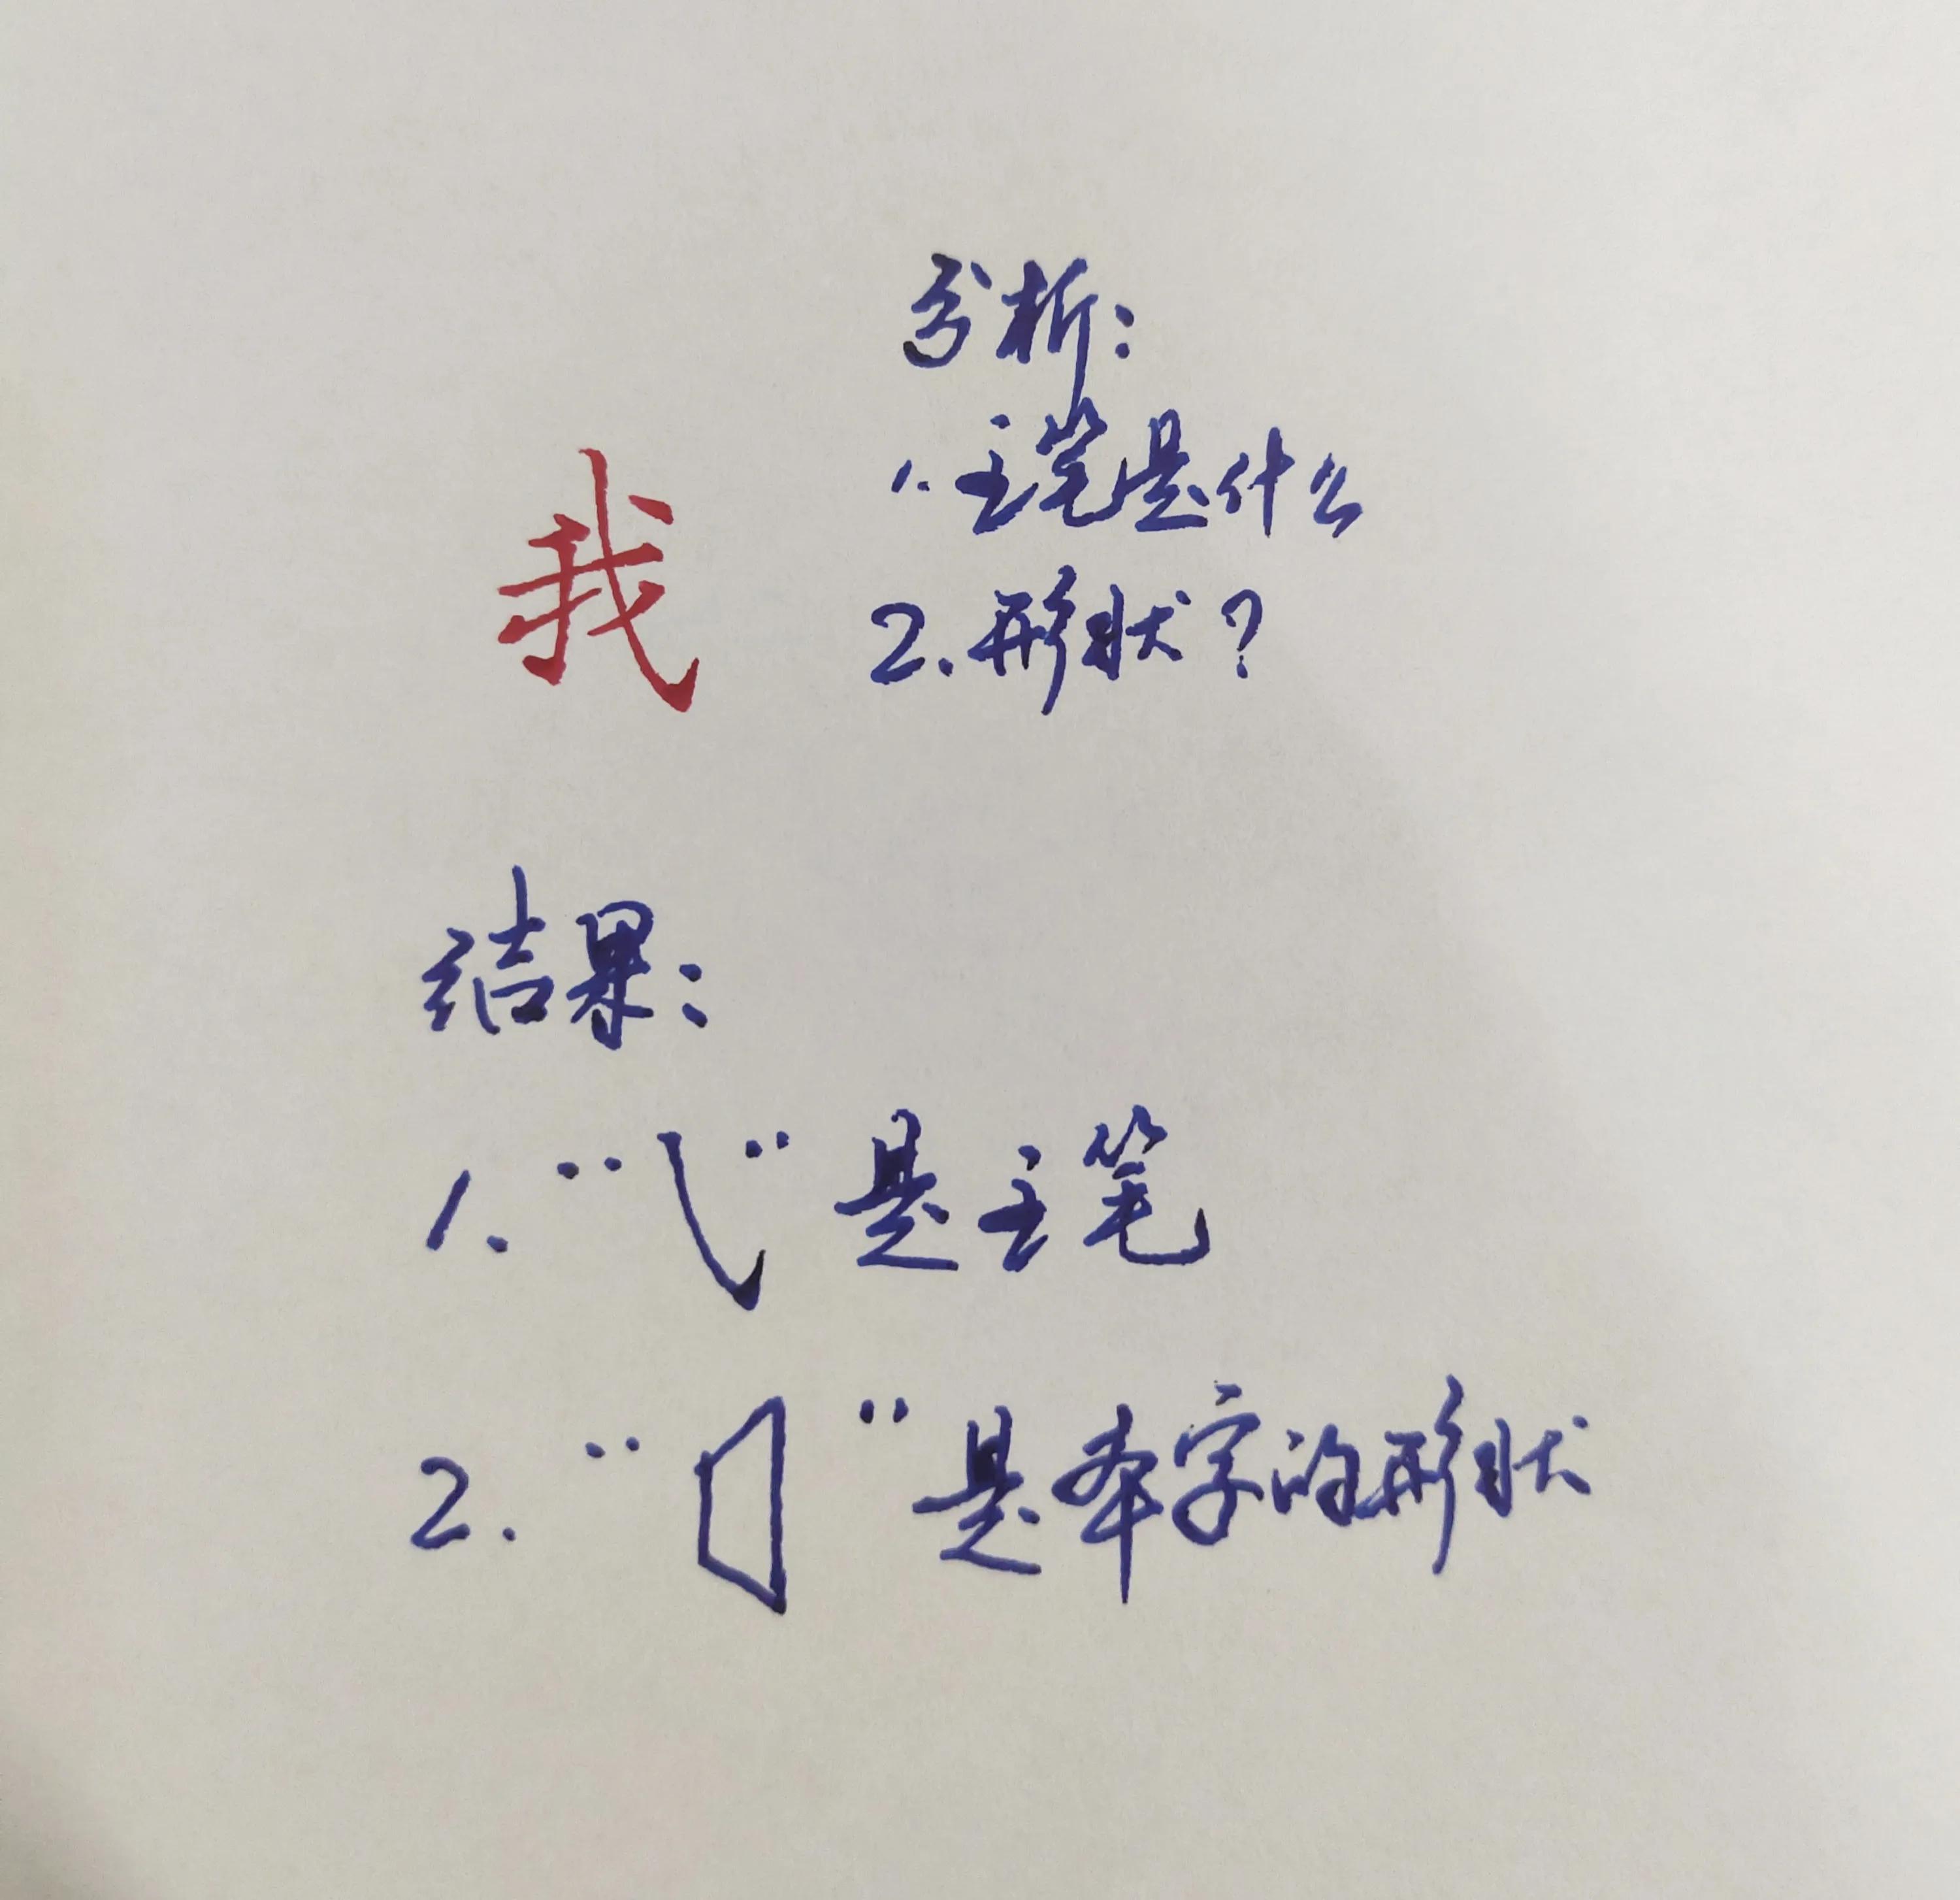 我
分析：
1.主笔是什么
2.形状？
结果：
1.“㇂”是主笔
2.“”是本字的形状